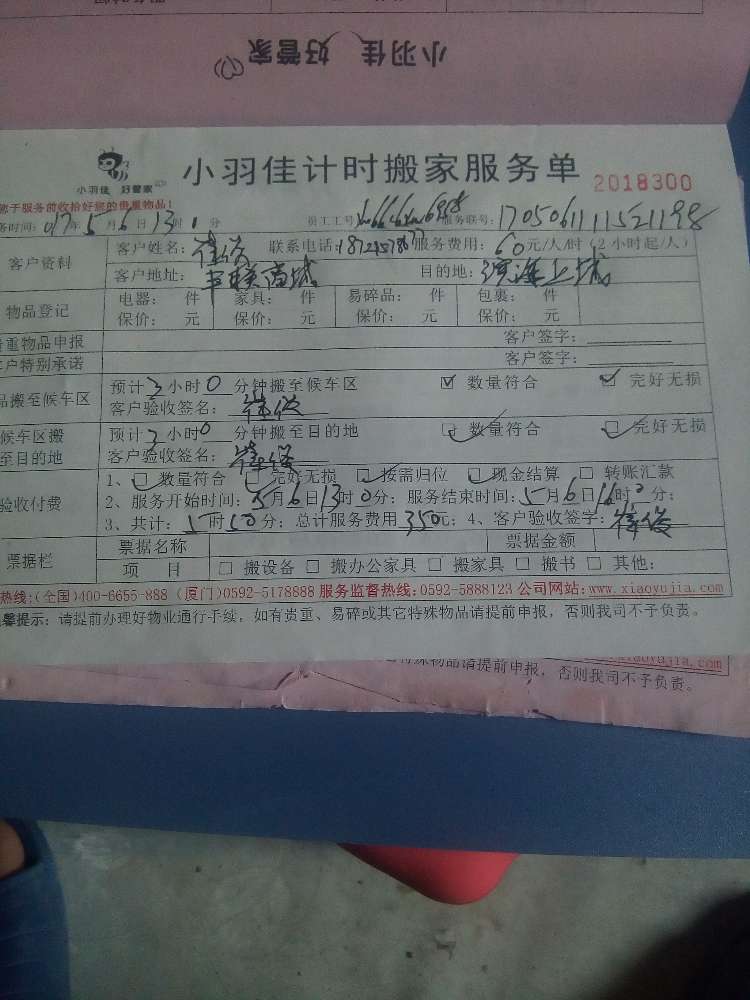 小羽佳 好管家
小羽佳 好管家
小羽佳计时搬家服务单 2018300
于服务前收拾好您的贵重物品!
务时间: 017年5月6日13时 分 员工工号 服务联号: 1705061111521198
客户资料 客户姓名: 联系电话: 服务费用: 60元/人/时 (2小时起/人)
客户地址: 目的地: 上城
物品登记 电器: 件 家具: 件 易碎品: 件 包裹: 件
保价: 元 保价: 元 保价: 元 保价: 元
贵重物品申报 客户签字:
客户特别承诺 客户签字:
品搬至候车区 预计 小时0分钟搬至候车区 数量符合 完好无损
客户验收签名:
候车区搬 预计 小时0分钟搬至目的地 数量符合 完好无损
至目的地 客户验收签名:
验收付费 1、数量符合 完好无损 按需归位 现金结算 转账汇款
2、服务开始时间: 5月6日13时0分; 服务结束时间: 5月6日16时 分;
3、共计: 5时50分; 总计服务费用350元; 4、客户验收签字:
票据栏 票据名称 票据金额
项 目 搬设备 搬办公家具 搬家具 搬书 其他:
热线:(全国)400-6655-888 (厦门)0592-5178888 服务监督热线:0592-5888123 公司网站:www.xiaoyujia.com
馨提示: 请提前办理好物业通行手续, 如有贵重、易碎或其它特殊物品请提前申报, 否则我司不予负责。
xiaoyujia.com
特殊物品请提前申报, 否则我司不予负责。